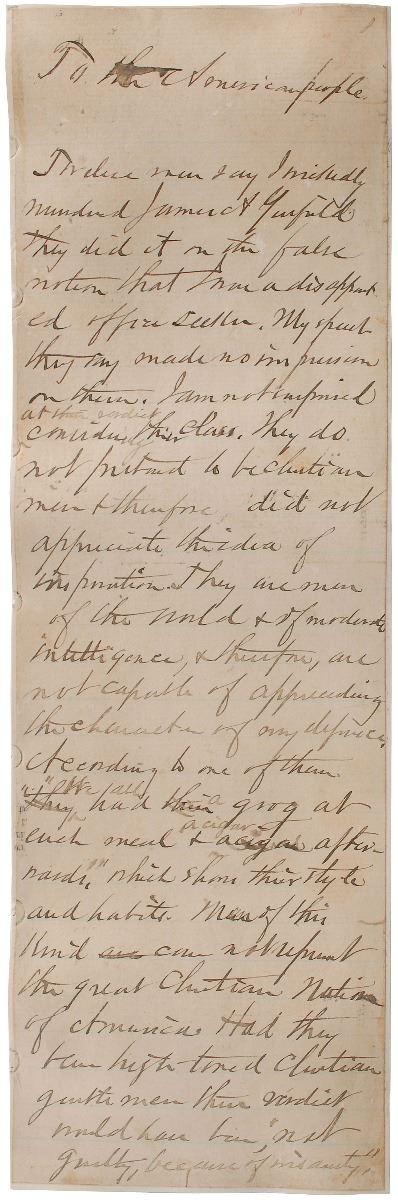 To the American people.
Twelve men say I wickedly
murdered James A Garfield
They did it on the false
notion that I was a disappoint
ed office seeker. My speech
they say made no impression
on them. I am not surprised
at their verdict
considering their class. They do
not pretend to be Christian
men & therefore, did not
appreciate the idea of
inspiration. They are men
of the world & of moderate
intelligence, & therefore, are
not capable of appreciating
the character of my defence.
According to one of them
"We all
had a grog at
a cigar
each meal & a cigar after-
wards," which shows their style
and habits. Men of this
kind are can not represent
the great Christian Nation
of America. Had they
been high-toned Christian
gentlemen their verdict
would have been, "not
guilty, because of insanity."